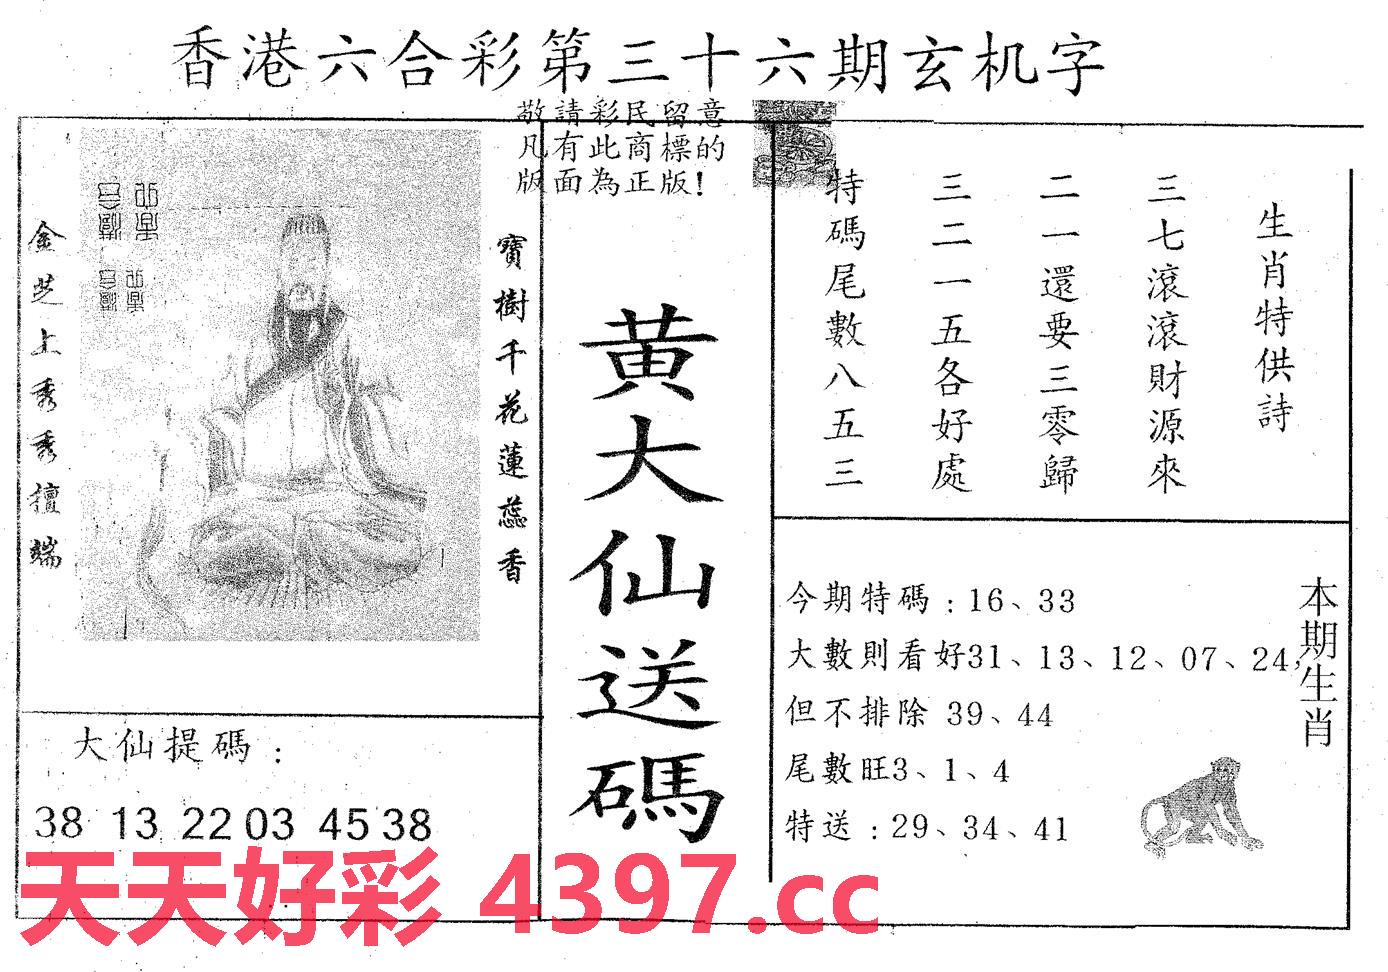 香港六合彩第三十六期玄机字
敬請彩民留意
凡有此商標的
版面為正版!
金芝上秀秀檀端
寶樹千花蓮蕊香
黄大仙送碼
生肖特供詩
三七滾滾財源來
二一還要三零歸
三二一五各好處
特碼尾數八五三
今期特碼:16、33
大數則看好31、13、12、07、24,
但不排除 39、44
尾數旺3、1、4
特送:29、34、41
本期生肖
大仙提碼:
38 13 22 03 45 38
天天好彩 4397.cc